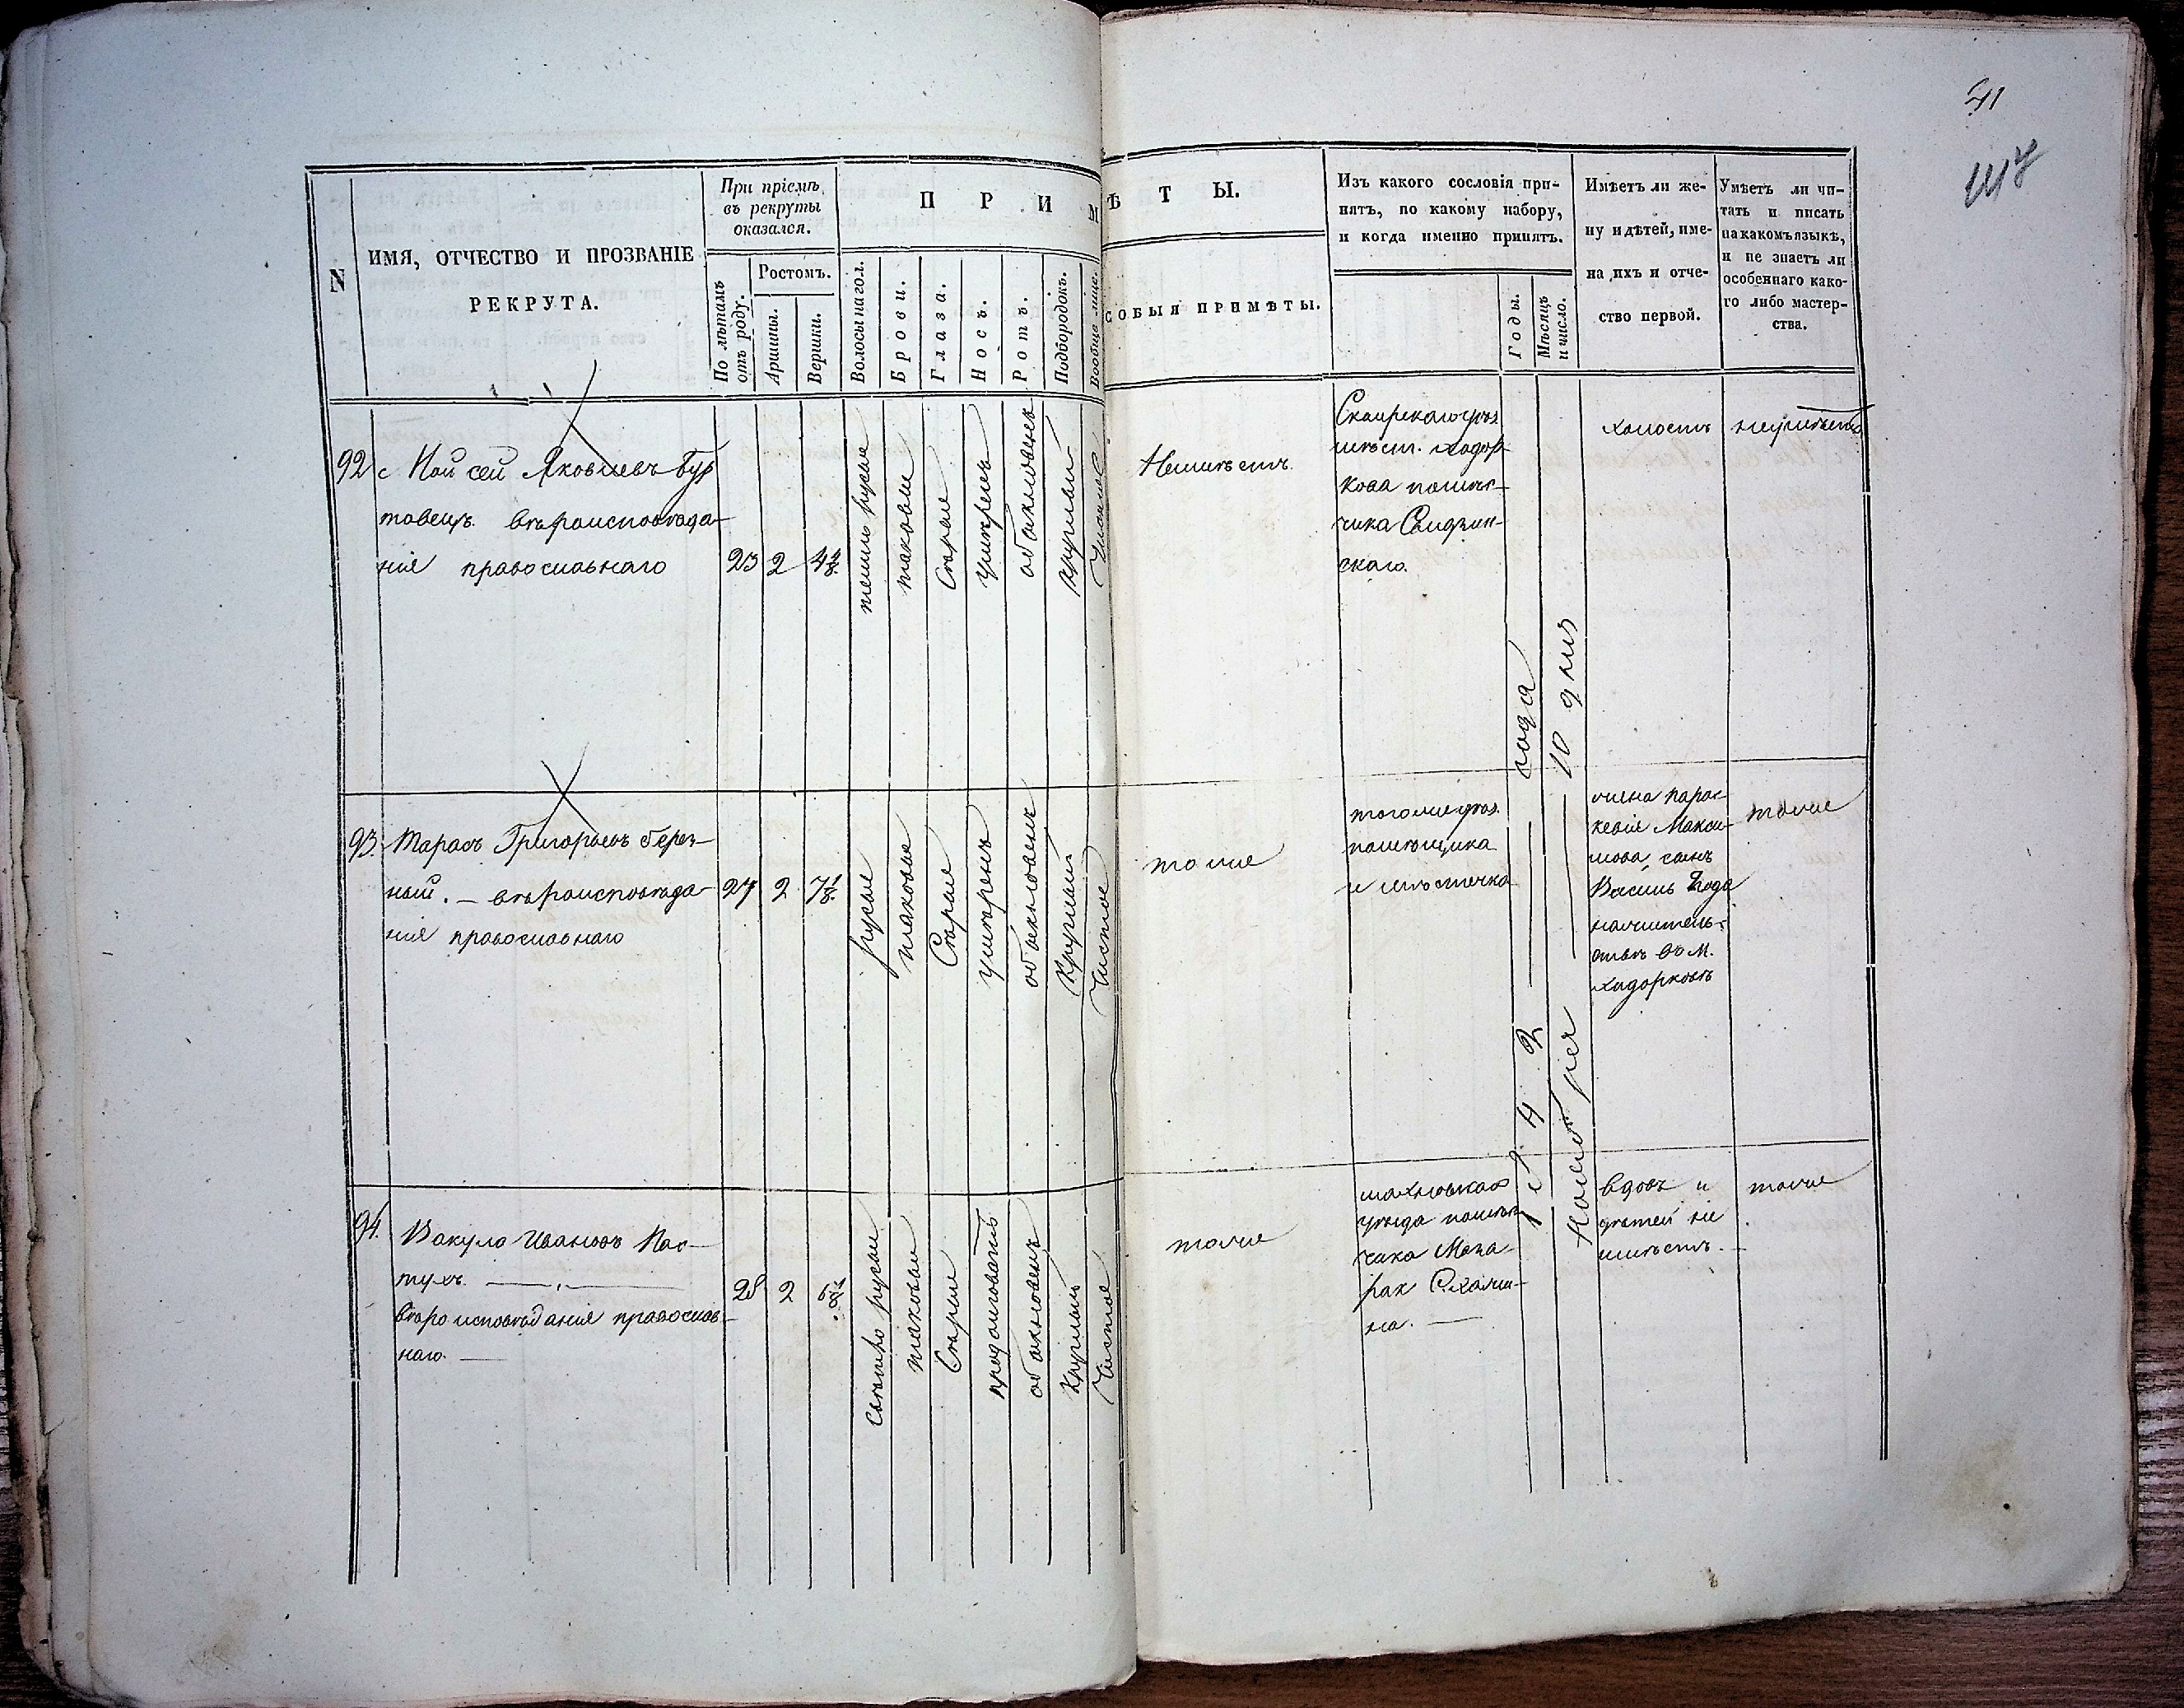 41
N
ИМЯ, ОТЧЕСТВО И ПРОЗВАНІЕ
РЕКРУТА.
При пріемѣ
въ рекруты
оказался.
По лѣтамъ
отъ роду.
Ростомъ.
Аршины.
Вершки.
П Р И М Ѣ Т Ы.
Волосы на гол.
Брови.
Глаза.
Носъ.
Ротъ.
Подбородокъ.
Вообще лице.
СОБЫЯ ПРИМѢТЫ.
Изъ какого сословія при-
нятъ, по какому набору,
и когда именно принятъ.
Годы.
Мѣсяцъ
и число.
Имѣетъ ли же-
ну и дѣтей, име-
на ихъ и отче-
ство первой.
Умѣетъ ли чи-
тать и писать
на какомъ языкѣ,
и не знаетъ ли
особеннаго како-
го либо мастер-
ства.
92
Мойсей Яковлевъ Бур
товецъ вѣроисповѣда-
нія православнаго
23
2
4
темно русые
таковые
Сѣрые
умѣренъ
обыкновенъ
круглый
Чистое
Неимѣетъ.
Сквирскаго уѣз.
мѣст. Ходор-
кова помѣщ-
чика Свидзин-
скаго.
холостъ
неумѣетъ
93.
Тарасъ Григорьевъ Берез-
ный. — вѣроисповѣда-
нія православнаго
27
2
7 1/8
русые
таковые
Сѣрые
умѣренъ
обыкновенъ
Круглый
Чистое
тоже
тогоже уѣз.
помѣщика
и мѣстечка
жена Парас-
кевія Макси-
мова, сынъ
Василь 2 года
на жительс-
твѣ въ м.
Ходорковѣ
тоже
94.
Вакула Ивановъ Пас-
тухъ. —
вѣроисповѣданія православ-
наго. —
28
2
6 1/8
Свѣтло русые
таковые
Сѣрые
продолговатъ
обыкновенъ
Круглый
Чистое
тоже
уѣзда помѣщ-
чика
вдовъ и
дѣтей не
имѣетъ. —
тоже
года
10 дня
Ноября